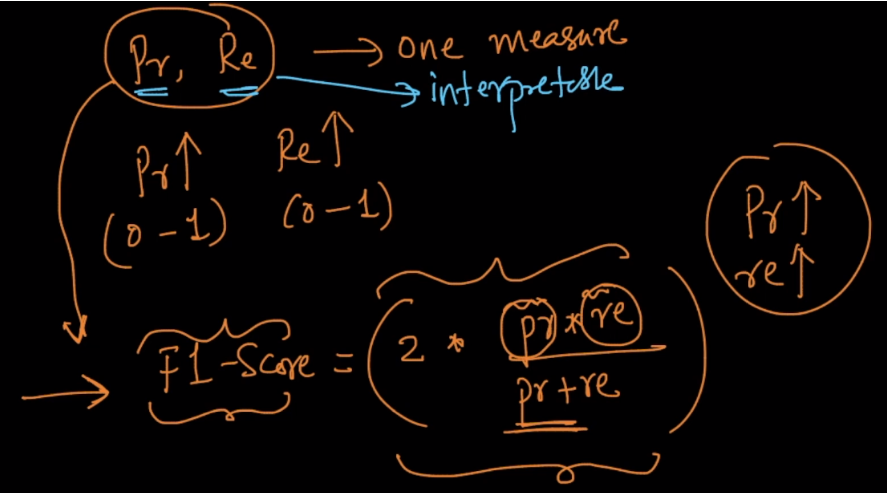 Pr, Re → one measure
→ interpretable
Pr↑ Re↑
(0-1) (0-1)
Pr↑
re↑
→ F1-Score = (2 * pr * re / pr + re)